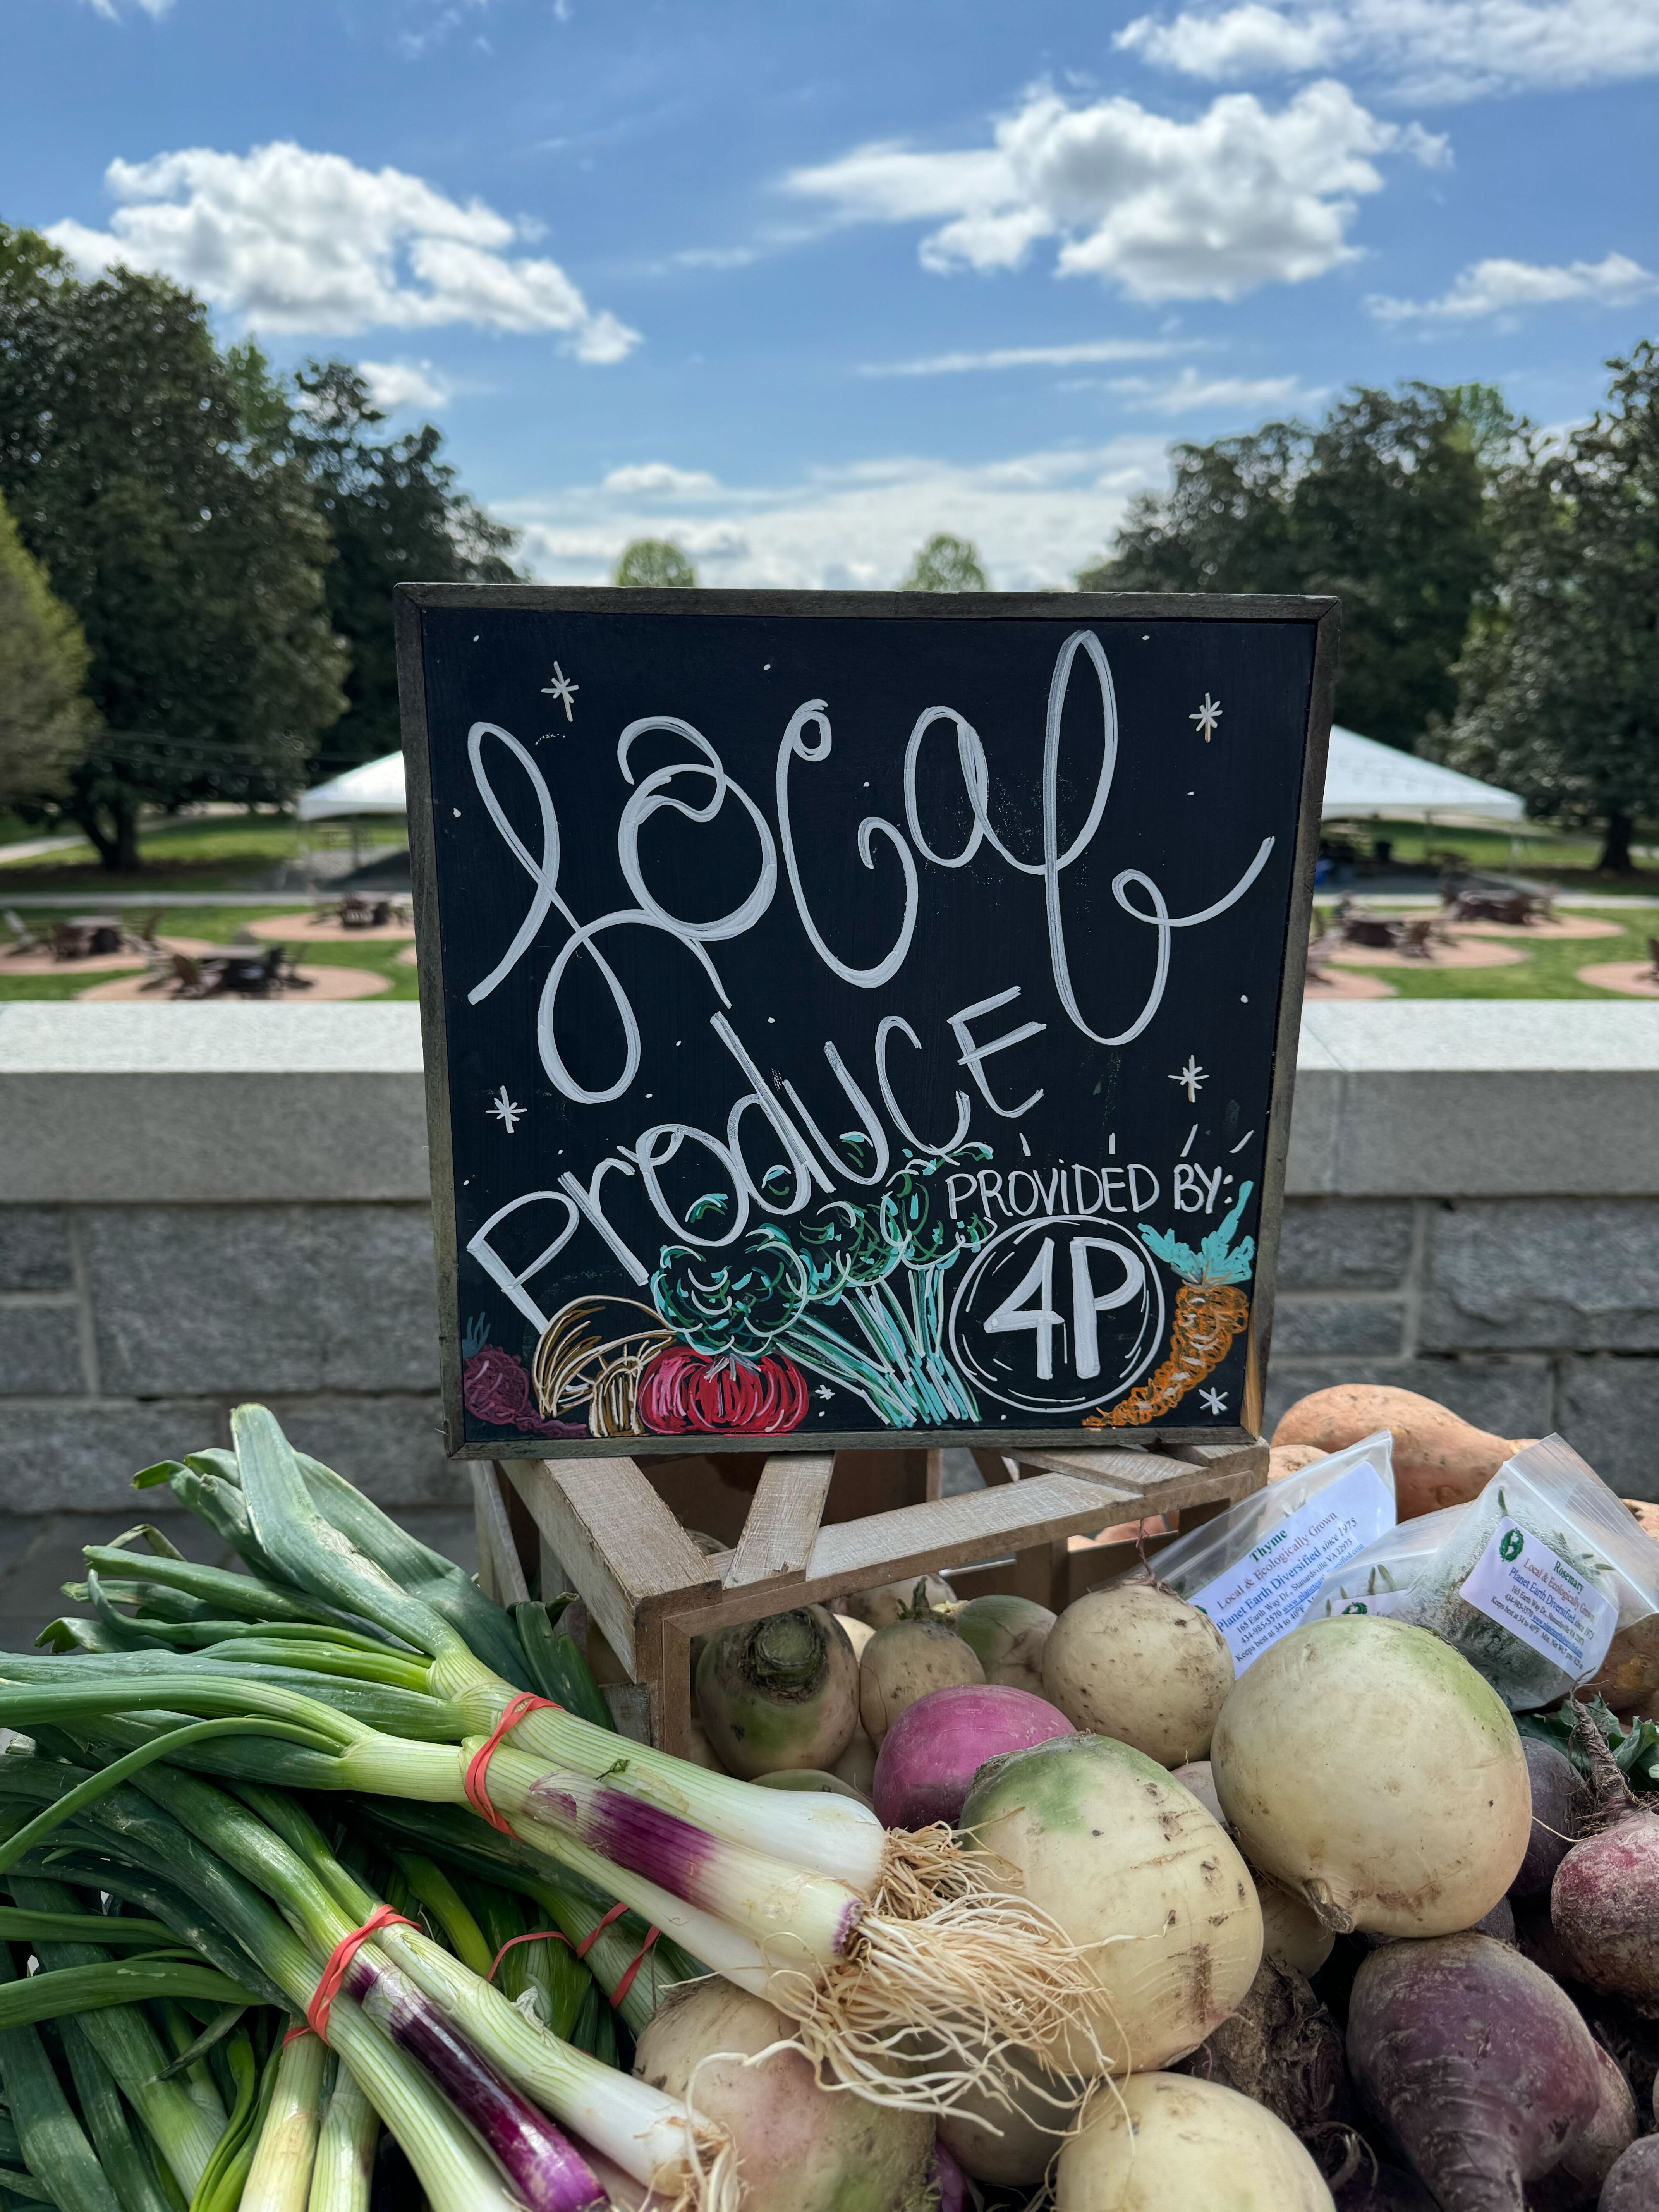 Local
Produce
PROViDED BY:
4P
Thyme
Local & Ecologically Grown
Planet Earth Diversified since 1975
165 Earth Way Dr., Stanardsville VA 22973
434-985-3570 www.
Keeps best at 34 to 40°F
Rosemary
Local & Ecologically Grown
Planet Earth Diversified since
165 Earth Way Dr., Stanardsville VA
434-985-3570
Keeps best at 34 to 40°F